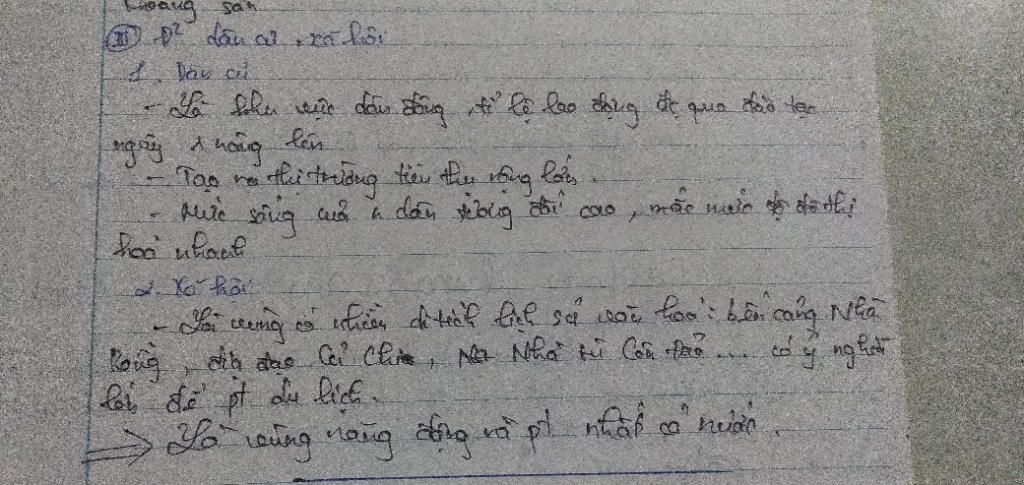 khoáng sản
III Đ² dân cư, xã hội
1. Dân cư
- Là khu vực dân đông, tỉ lệ lao động đc qua đào tạo
ngày λ nâng lên
- Tạo ra thị trường tiêu thụ rộng lớn.
- Mức sống của n dân tương đối cao, mức đô thị
hoá nhanh
2. Xã hội
- Là vùng có nhiều di tích lịch sử văn hoá: bến cảng Nhà
Rồng, địa đạo Củ Chi, Nhà tù Côn Đảo... có ý nghĩa
lớn để pt du lịch.
⇒ Là vùng năng động và pt nhất cả nước.